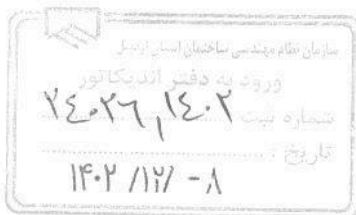 سازمان نظام مهندسی ساختمان استان اردبیل
ورود به دفتر اندیکاتور
شماره ثبت ۷۴۰۲۶,۱۴۰۲
تاریخ : ۱۴۰۲ /۱۲/ -۸